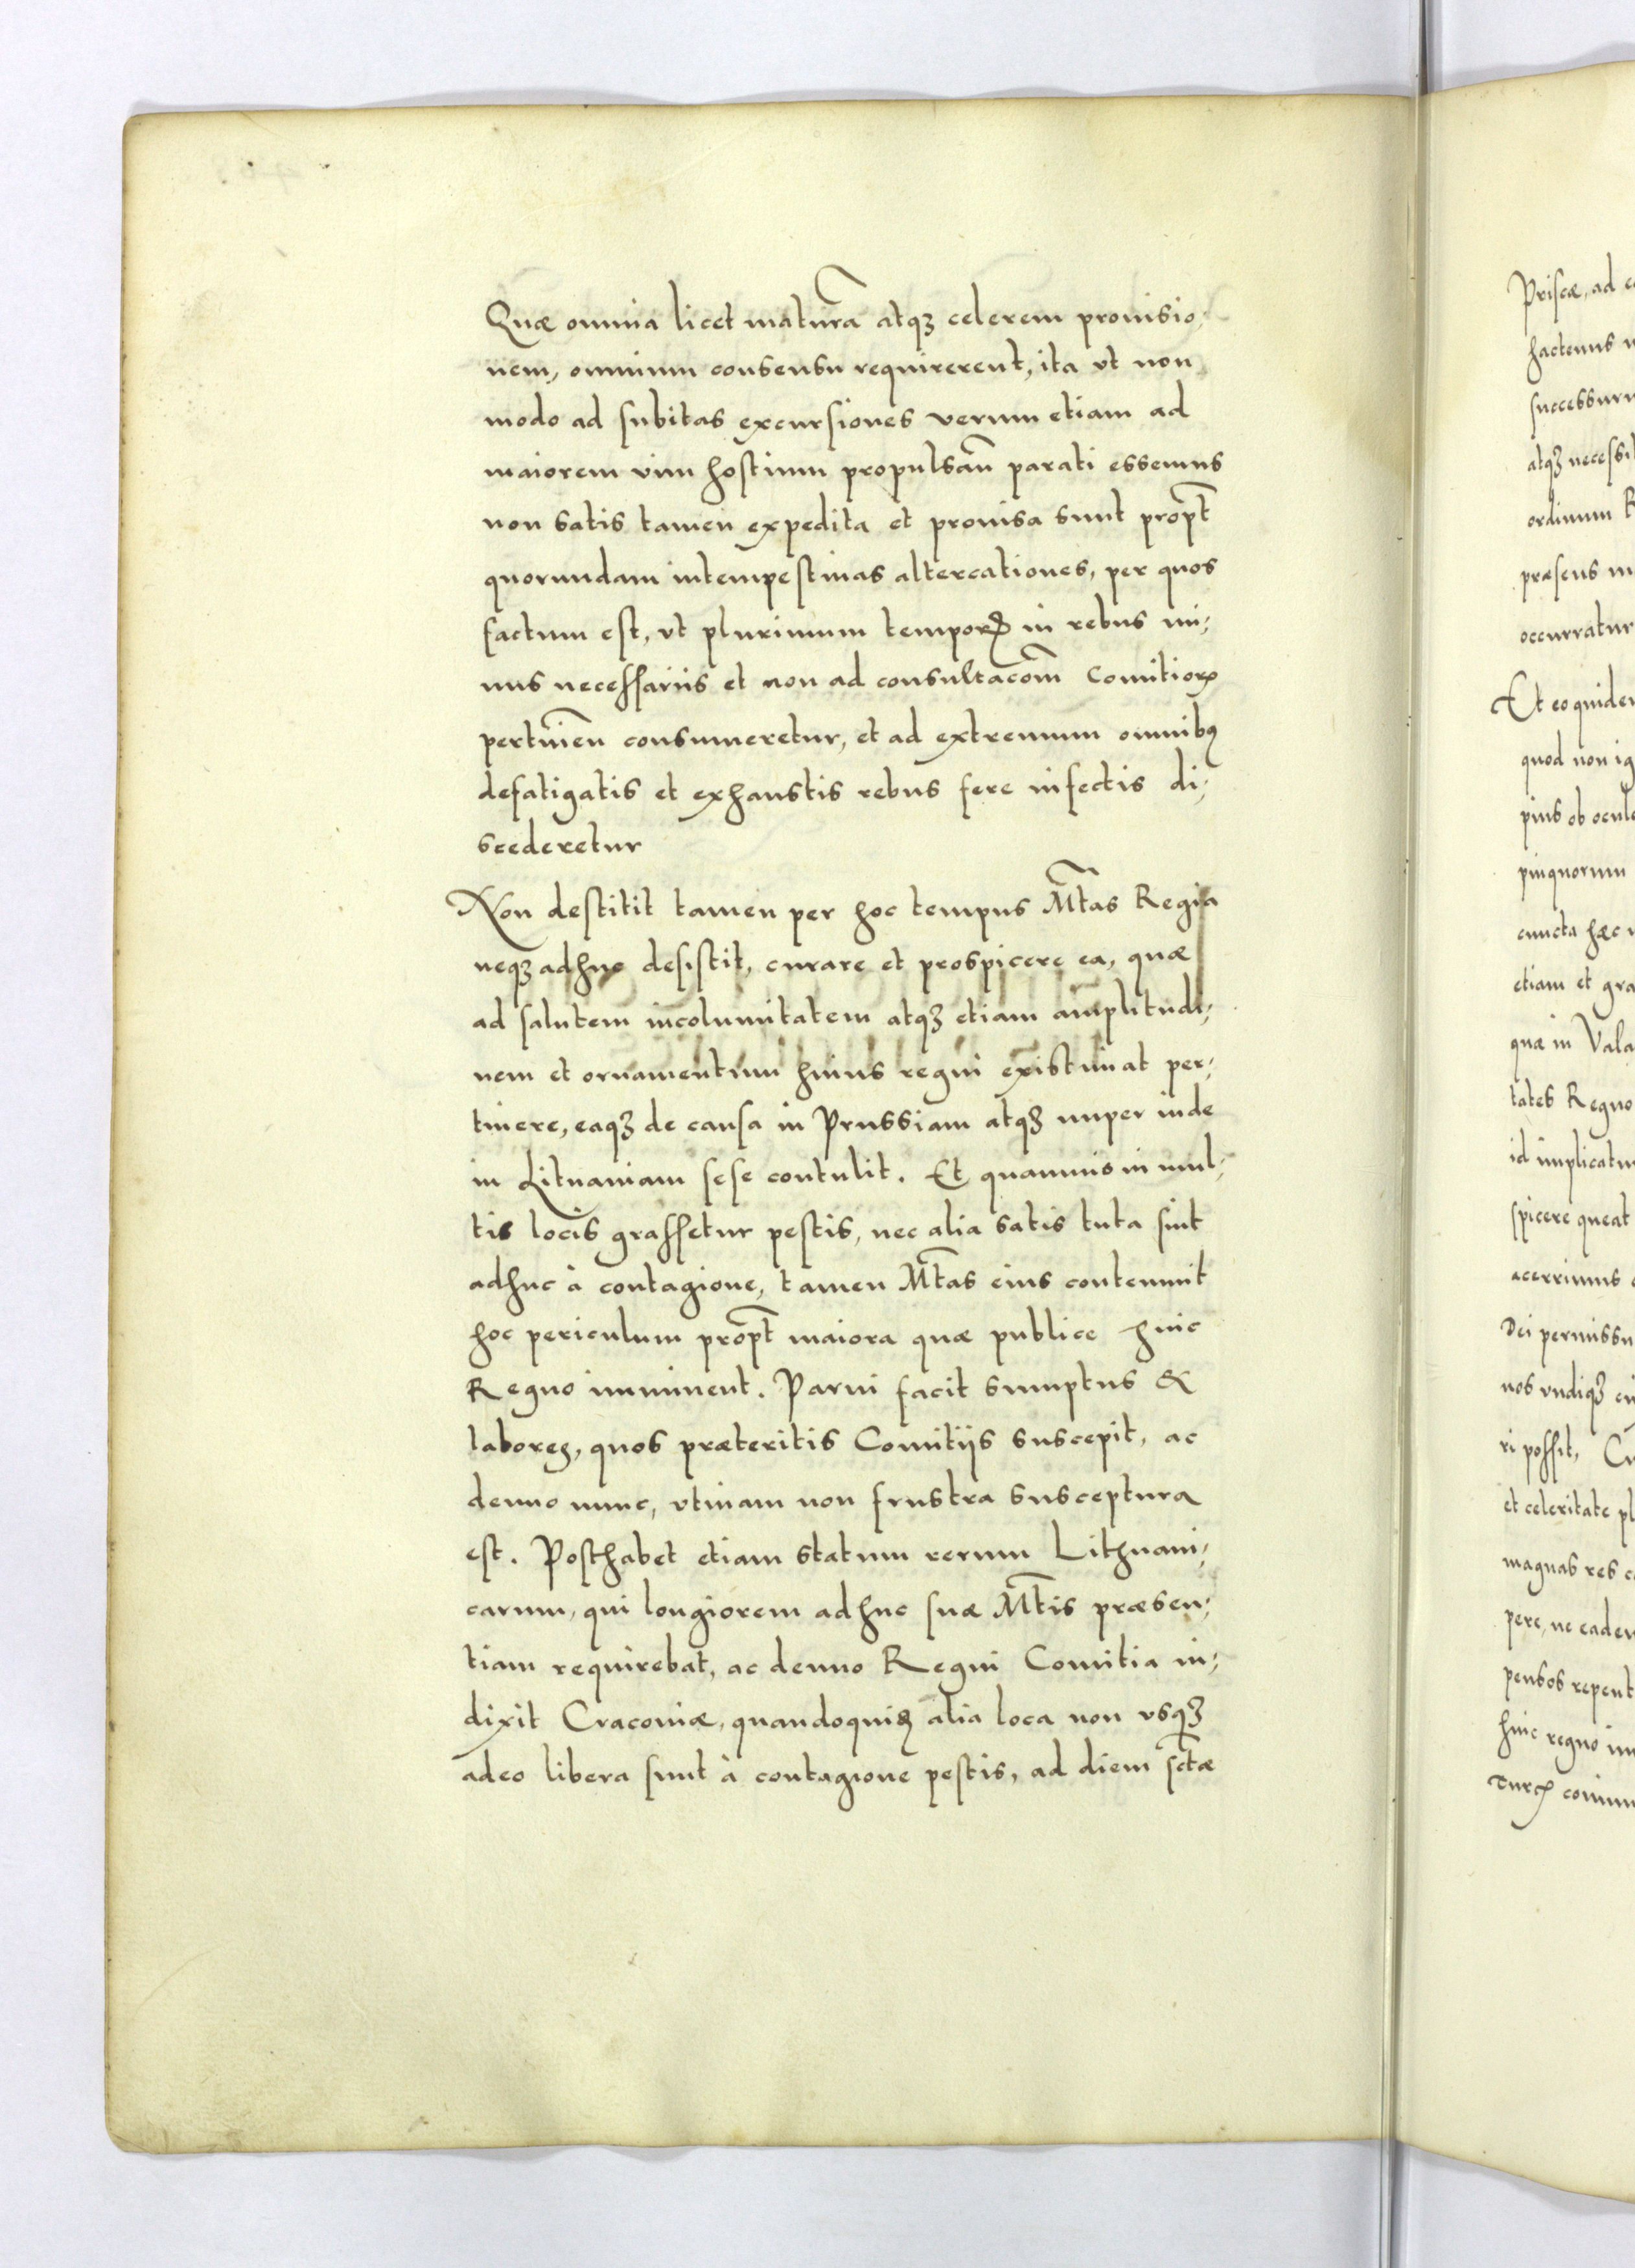 Quæ omnia licet maturã atqꝫ celerem prouisio,
nem, omnium consensu requirerent, ita vt non
modo ad subitas excursiones verum etiam ad
maiorem vim hostium propulsañ parati essemus
non satis tamen expedita et prouisa sunt propt̃
quorundam intempestiuas altercationes, per quos
factum est, vt plurimum temporꝭ in rebus mi,
nus necessariis et non ad consultac̃om Comitioꝝ
pertineñ consumeretur, et ad extremum omnibꝰ
defatigatis et exhaustis rebus fere infectis di,
scederetur
Non destitit tamen per hoc tempus M̃tas Regia
neqꝫ adhuc desistit, curare et prospicere ea, quæ
ad salutem incolumitatem atqꝫ etiam amplitudi,
nem et ornamentum huius regni existimat per,
tinere, eaqꝫ de causa in Prussiam atqꝫ nuper inde
in Lituaniam sese contulit. Et quamuis in mul,
tis locis grassetur pestis, nec alia satis tuta sint
adhuc à contagione, tamen M̃tas eius contemnit
hoc periculum propt̃ maiora quæ publice huic
Regno imminent. Parui facit sumptus &
labores, quos præteritis Comitijs suscepit, ac
denuo nunc, vtinam non frustra susceptura
est. Posthabet etiam statum rerum Lithuani,
carum, qui longiorem adhuc suæ M̃tis præsen,
tiam requirebat, ac denuo Regni Comitia in,
dixit Cracouiæ, quandoquiꝫ alia loca non vsqꝫ
adeo libera sunt à contagione pestis, ad diem sc̃tæ
Priscæ, ad
hactenus
successur
atqꝫ necessit
ordinum R
præsens
occurratur
Et eo quidem
quod non ig
pius ob
pinquorum
cuncta hæc
etiam et gra
quæ in Vala
tates Regno
id implicatu
spicere queat
acerrimus
Dei permissu
nos vndiqꝫ
ri possit,
et celeritate pl
magnas res
pere, ne eadem
pensos repent
huic regno im